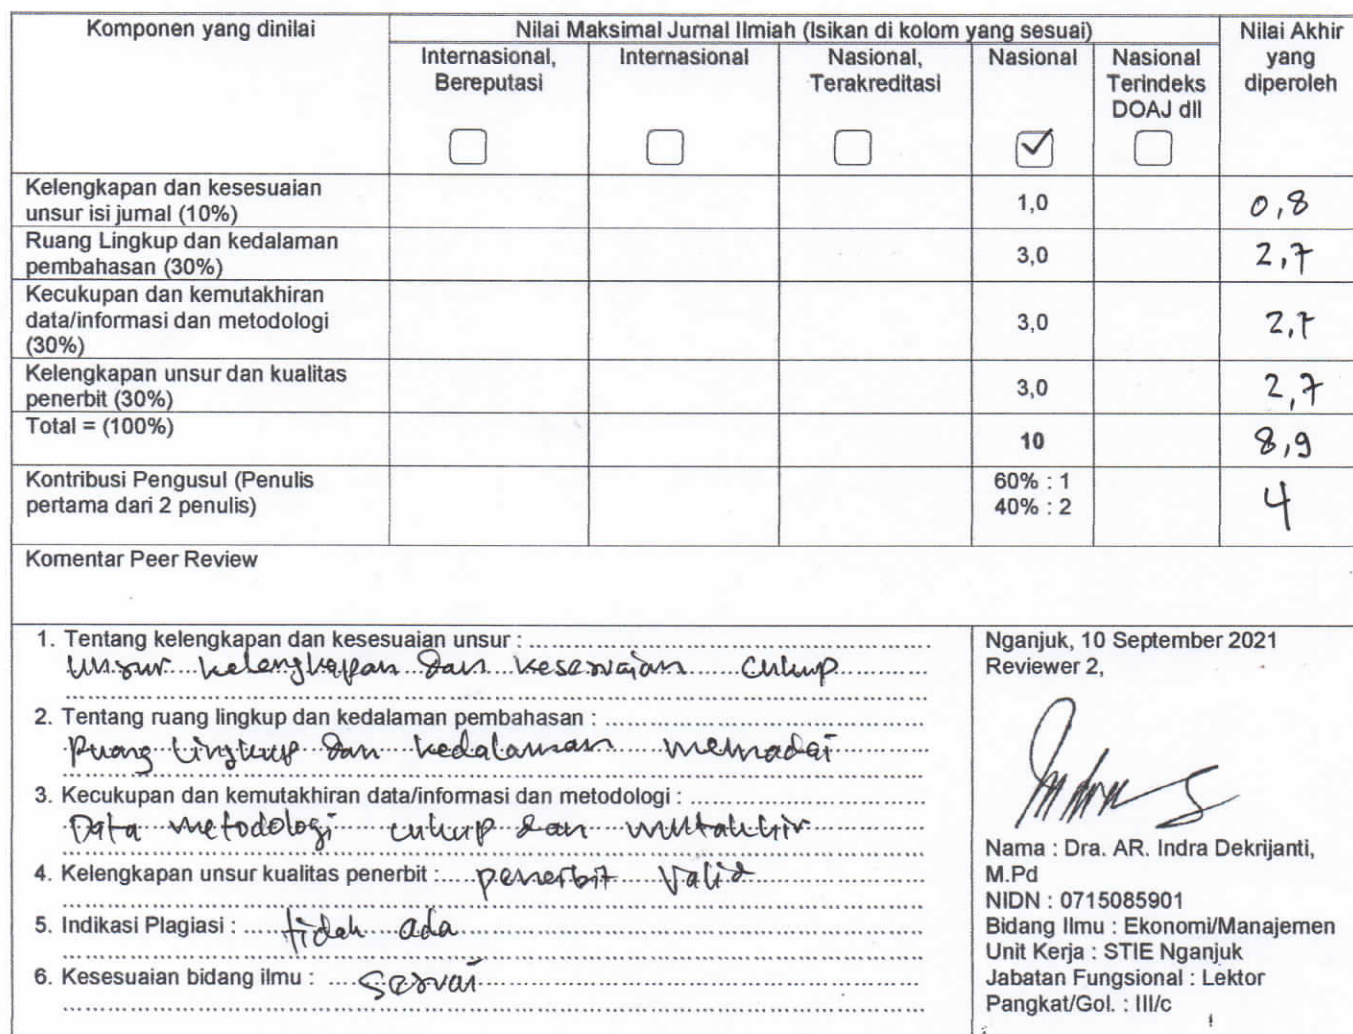 Komponen yang dinilai
Nilai Maksimal Jurnal Ilmiah (Isikan di kolom yang sesuai)
Nilai Akhir
yang
diperoleh
Internasional,
Bereputasi
Internasional
Nasional,
Terakreditasi
Nasional
Nasional
Terindeks
DOAJ dll
Kelengkapan dan kesesuaian
unsur isi jurnal (10%)
1,0
0,8
Ruang Lingkup dan kedalaman
pembahasan (30%)
3,0
2,7
Kecukupan dan kemutakhiran
data/informasi dan metodologi
(30%)
3,0
2,7
Kelengkapan unsur dan kualitas
penerbit (30%)
3,0
2,7
Total = (100%)
10
8,9
Kontribusi Pengusul (Penulis
pertama dari 2 penulis)
60% : 1
40% : 2
4
Komentar Peer Review
1. Tentang kelengkapan dan kesesuaian unsur :
Unsur kelengkapan dan kesesuaian cukup
2. Tentang ruang lingkup dan kedalaman pembahasan :
Ruang lingkup dan kedalaman memadai
3. Kecukupan dan kemutakhiran data/informasi dan metodologi :
Data metodologi cukup dan mutakhir
4. Kelengkapan unsur kualitas penerbit : penerbit valid
5. Indikasi Plagiasi : tidak ada
6. Kesesuaian bidang ilmu : sesuai
Nganjuk, 10 September 2021
Reviewer 2,
Nama : Dra. AR. Indra Dekrijanti,
M.Pd
NIDN : 0715085901
Bidang Ilmu : Ekonomi/Manajemen
Unit Kerja : STIE Nganjuk
Jabatan Fungsional : Lektor
Pangkat/Gol. : III/c